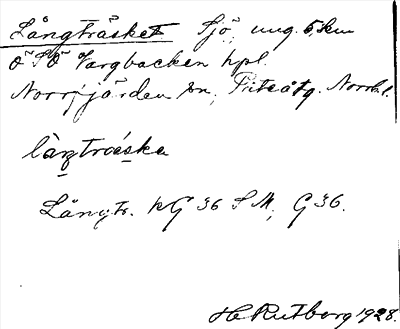 Långträsket Sjö, ung. 5 km
ö SÖ Vargbacken hpl.
Norrfjärden sn, Piteå tg. Norrb.
làŋtrǽska
Långtr. kG 36 S M, G 36.
H Rutborg 1928.